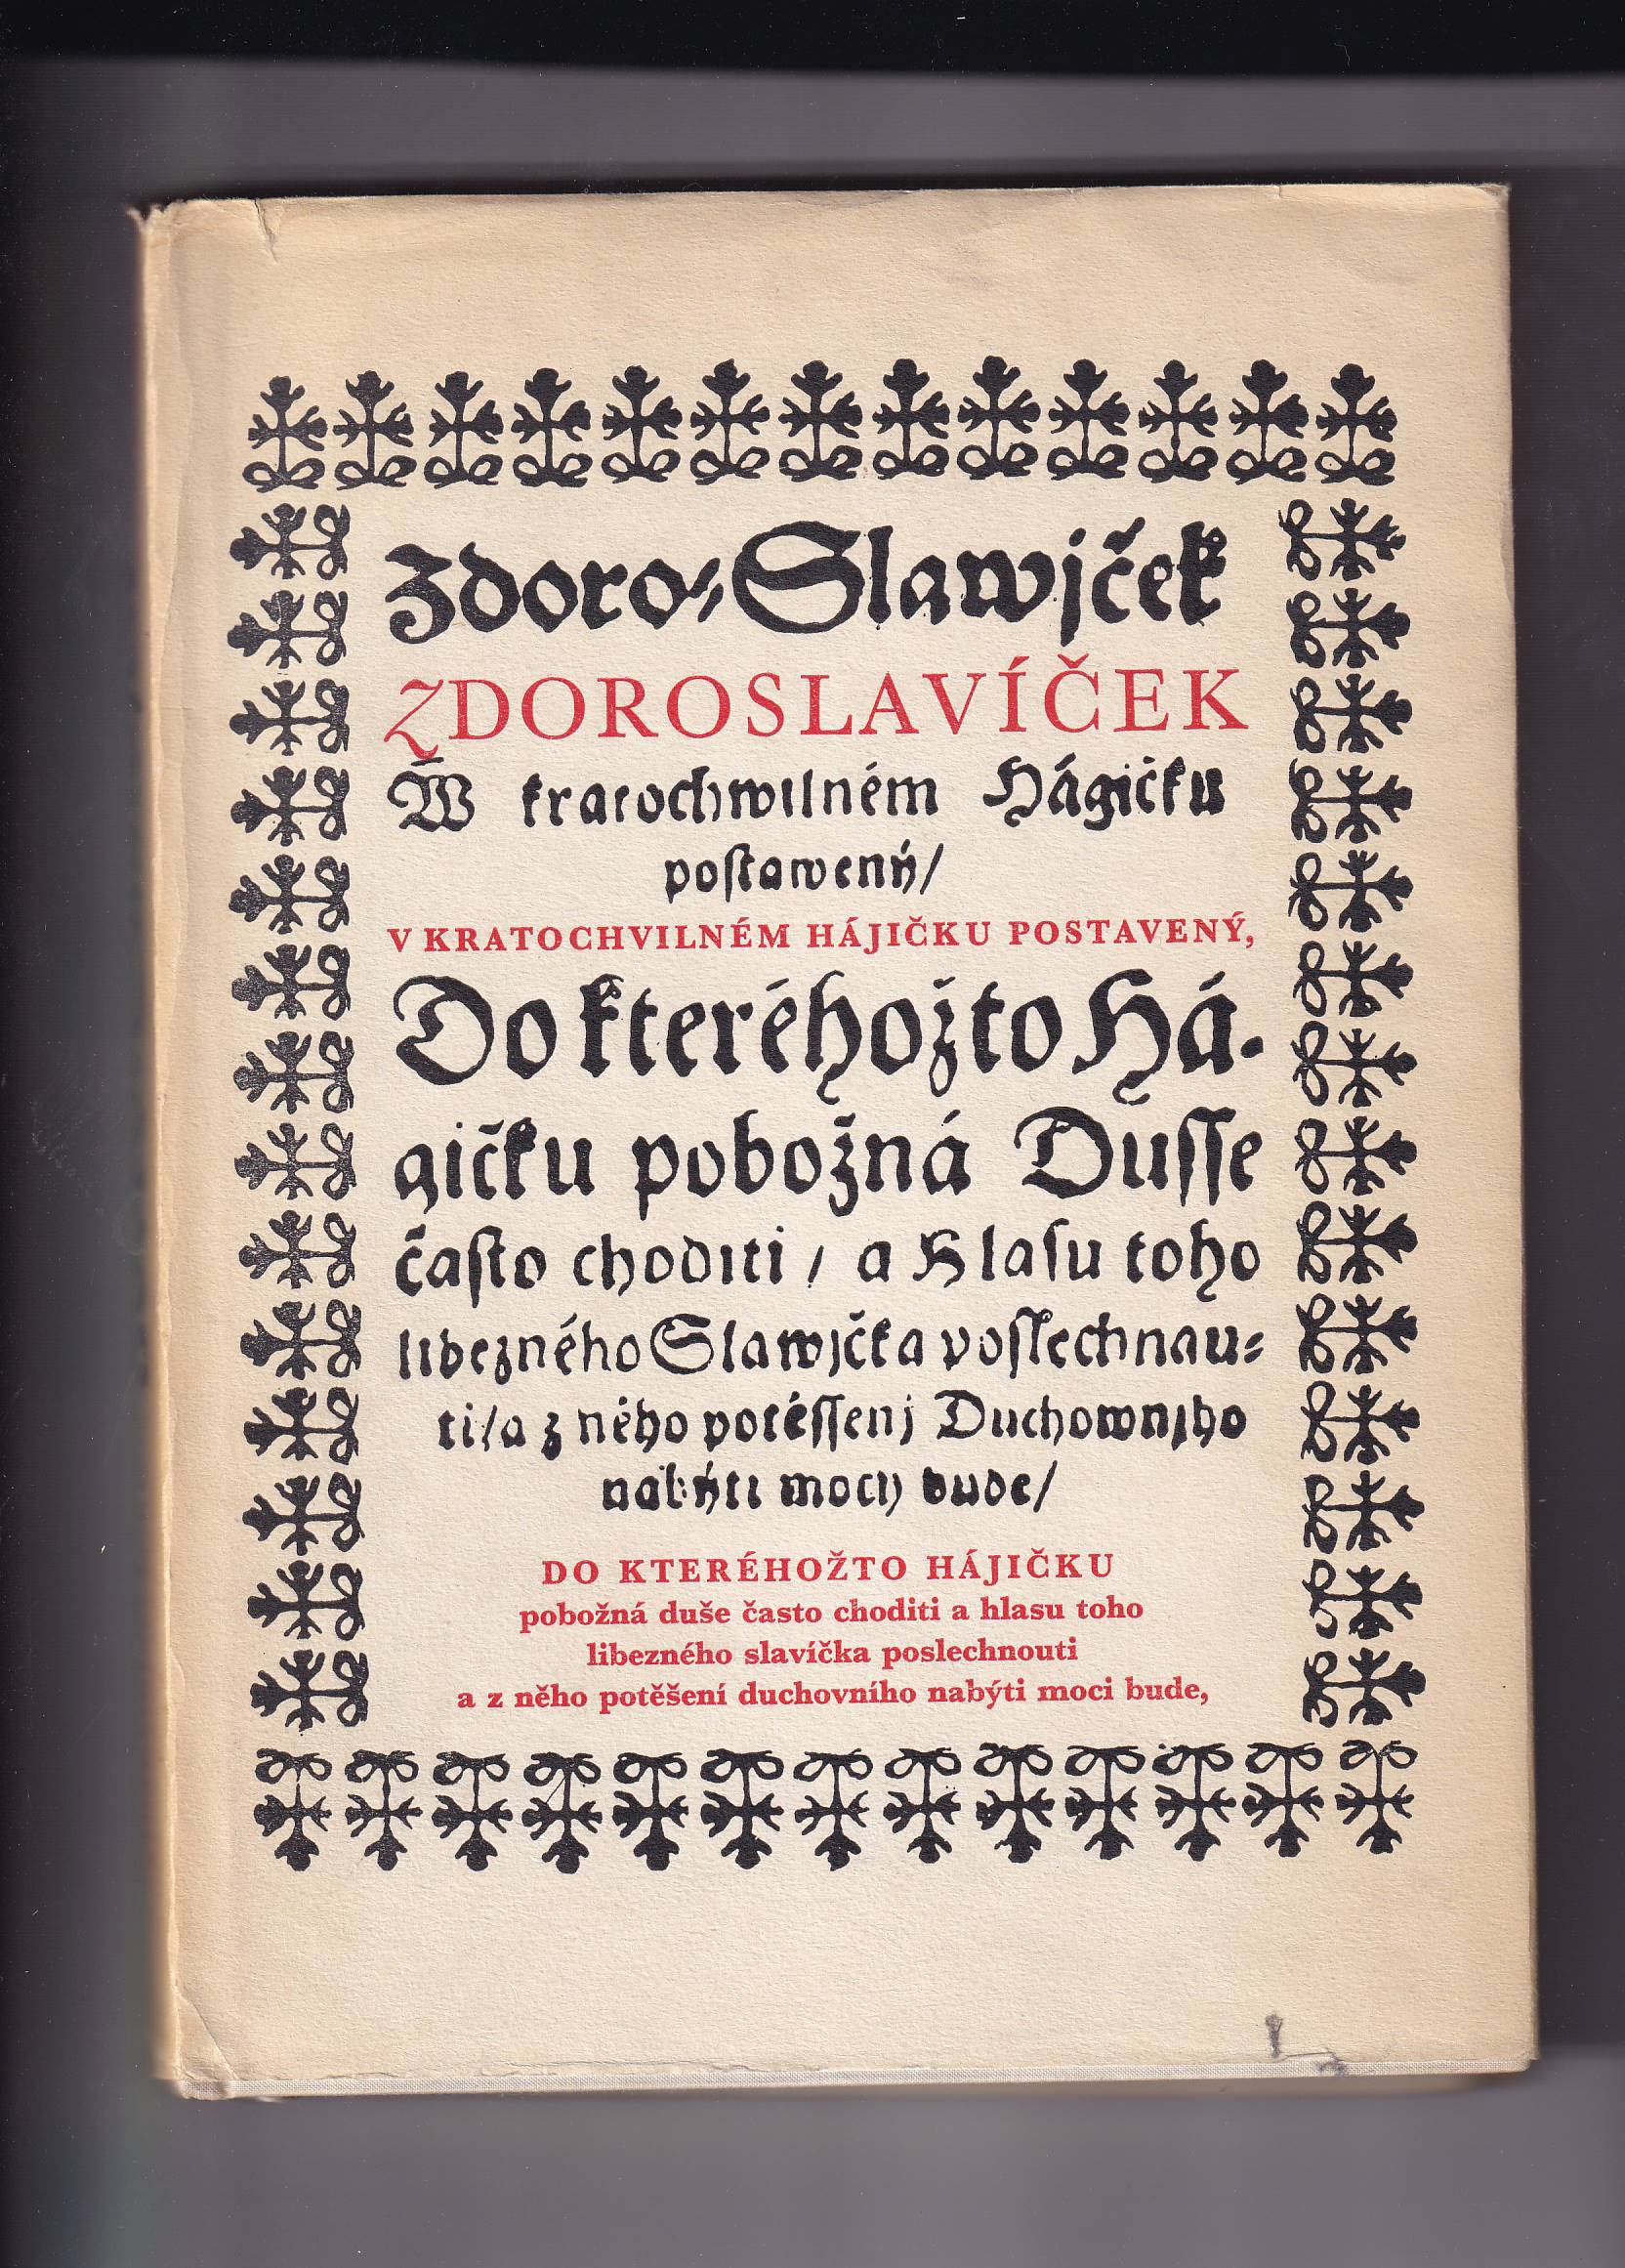 Zdoro⸗Slawjček
ZDOROSLAVÍČEK
W kratochwilném Hágičku
postawený/
V KRATOCHVILNÉM HÁJIČKU POSTAVENÝ,
Do kteréhožto Há-
gičku pobožná Dusse
často choditi / a Hlasu toho
libezného Slawjčka poslechnau⸗
ti/a z něho potěssenj Duchownjho
nabýti mocy bude/
DO KTERÉHOŽTO HÁJIČKU
pobožná duše často choditi a hlasu toho
libezného slavíčka poslechnouti
a z něho potěšení duchovního nabýti moci bude,